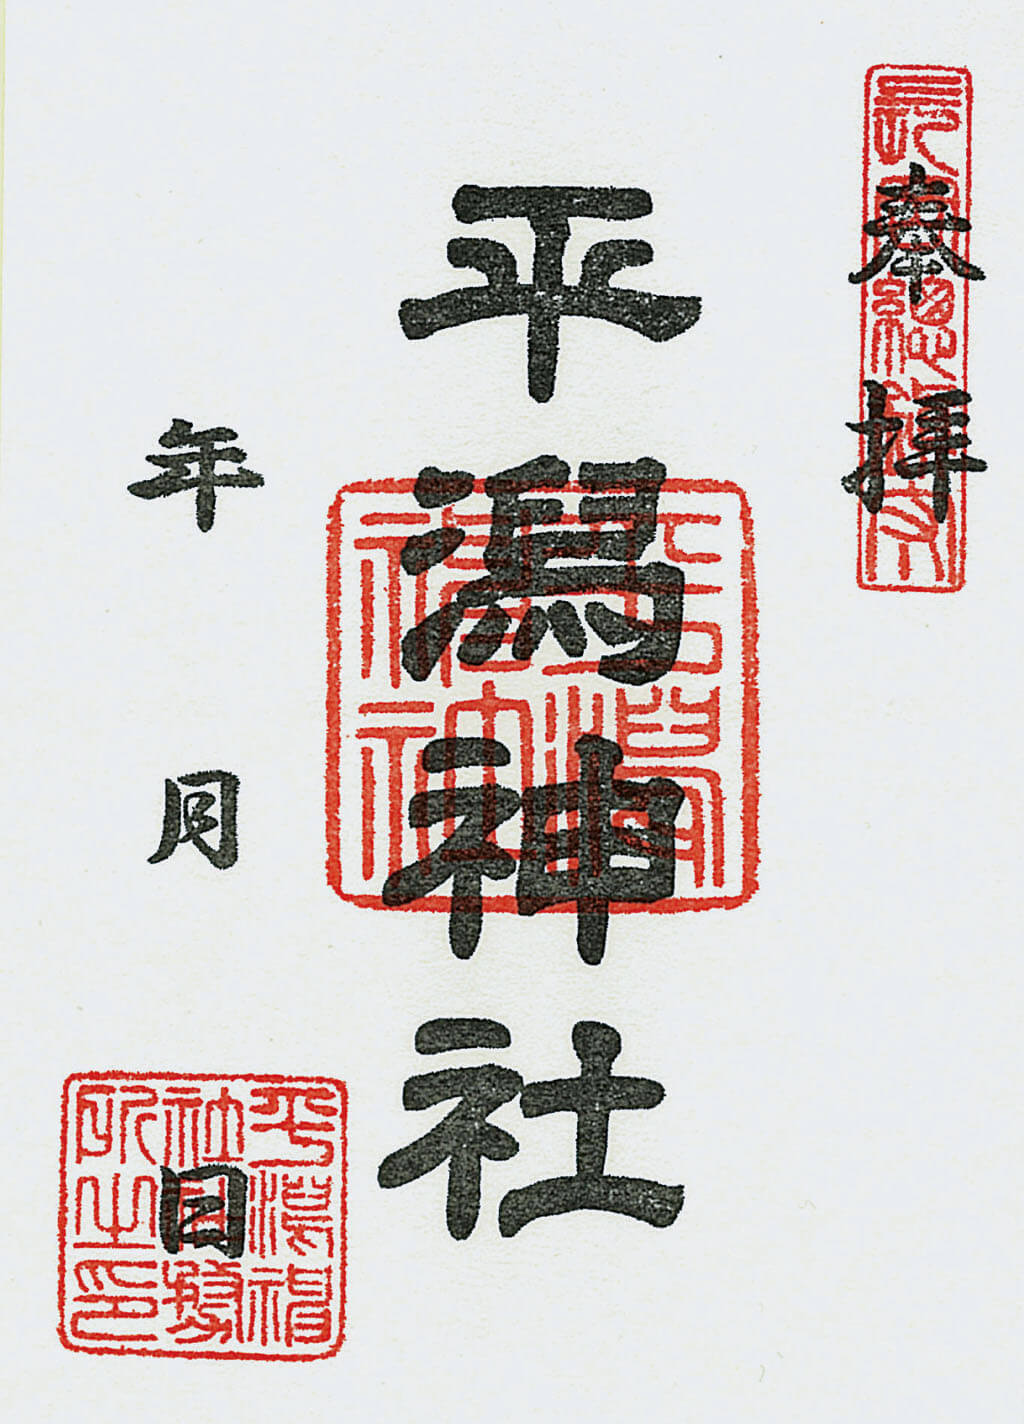 奉拝
長岡總鎮守
平潟神社
平潟神社
年 月 日
平潟神
社社務
所之印